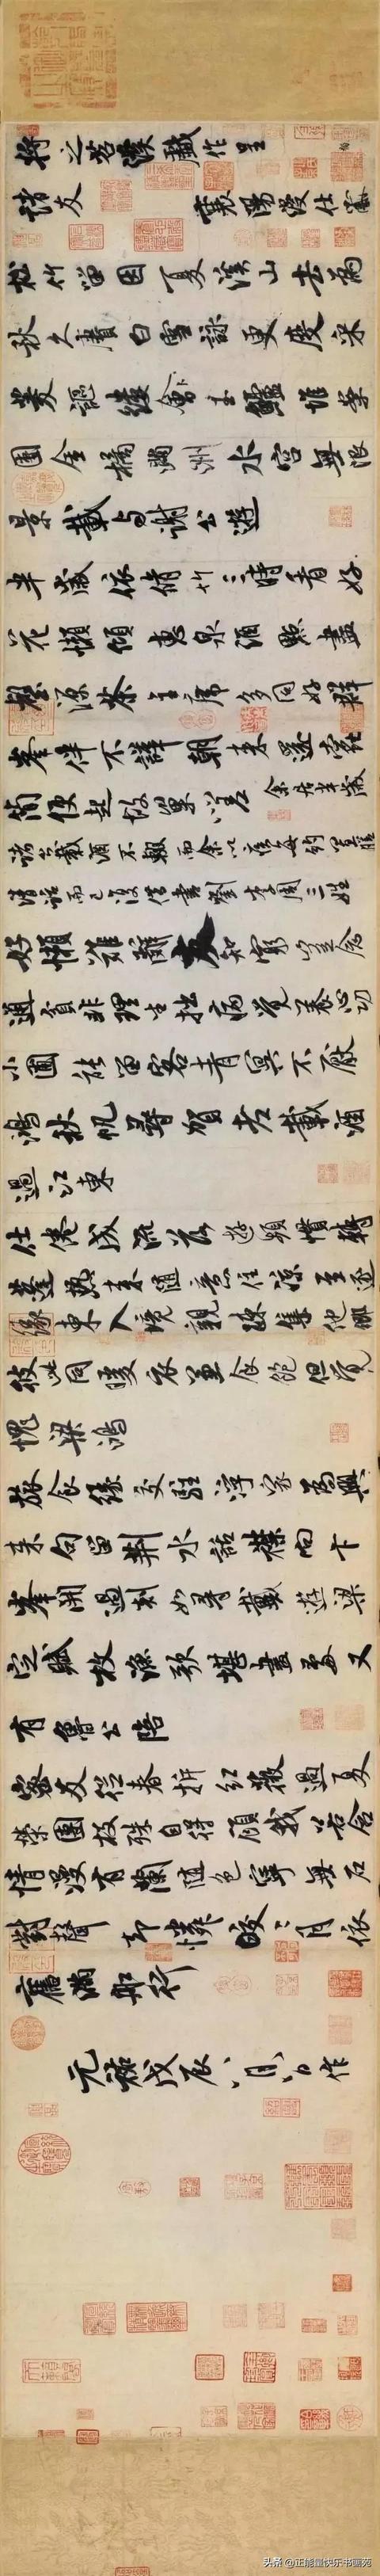 將之苕溪戲作呈
諸友 襄陽漫仕黻
松竹留因夏溪山去為
秋久賡白雪詠更度采
菱謳縷會玉鱸堆案
團金橘滿洲水宮無限
景載與謝公遊
半歲依脩竹三時看好
花懶傾惠泉酒點盡
壑源茶主席多同好群
峯伴不譁朝來還蠹
簡便起故巢嗟 余居半歲
諸公載酒不輟而余以疾每約置膳
清話而已復借書劉李周三姓
好懶難辭友知窮豈念
通貧非理生拙病覺養心功
小圃能留客青冥不厭
鴻秋帆尋賀老載酒
過江東
仕倦成流落遊頻慣轉
蓬熱來隨意住涼至逐
緣東入境親疎集他鄉
彼此同暖衣兼食飽但覺
愧梁鴻
旅食緣交駐浮家為興
來句留荊水話襟向卞
峯開過剡如尋戴遊梁
定賦枚漁歌堪畫處又
有魯公陪
密友從春拆紅薇過夏
榮團枝殊自得顧我若含
情漫有蘭隨色寧無石
對聲却憐皎皎月依
舊滿船行
元祐戊辰八月八日作
头条 @正能量快乐书画苑